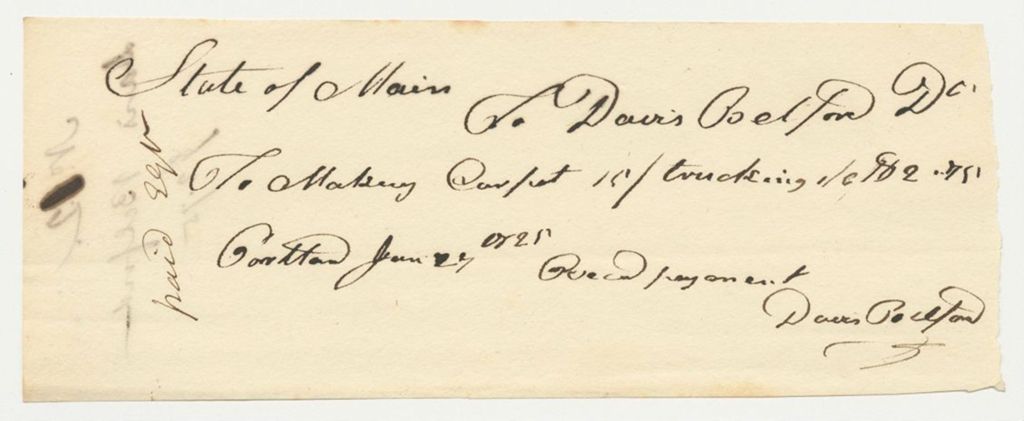 State of Main
To Davis Belford Dr
To Making Carpet 15/ trucking 1/6 $2.75
Portland Jan 27 1825
Recd payment
Davis Belford
paid